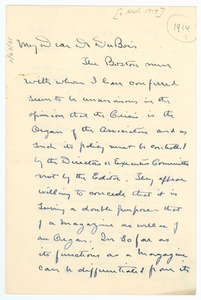 [9 Nov. 1914]
1914
My Dear Dr DuBois
The Boston men
with whom I have conferred
seem to be unanimous in the
opinion that the Crisis is the
Organ of the Association and as
such its policy must be controlled
by the Directors or Executive Committee
not by the Editor. They appear
willing to concede that it is
serving a double purpose that of
a magazine as well as of
an Organ. In so far as
its functions as a magazine
can be differentiated from its